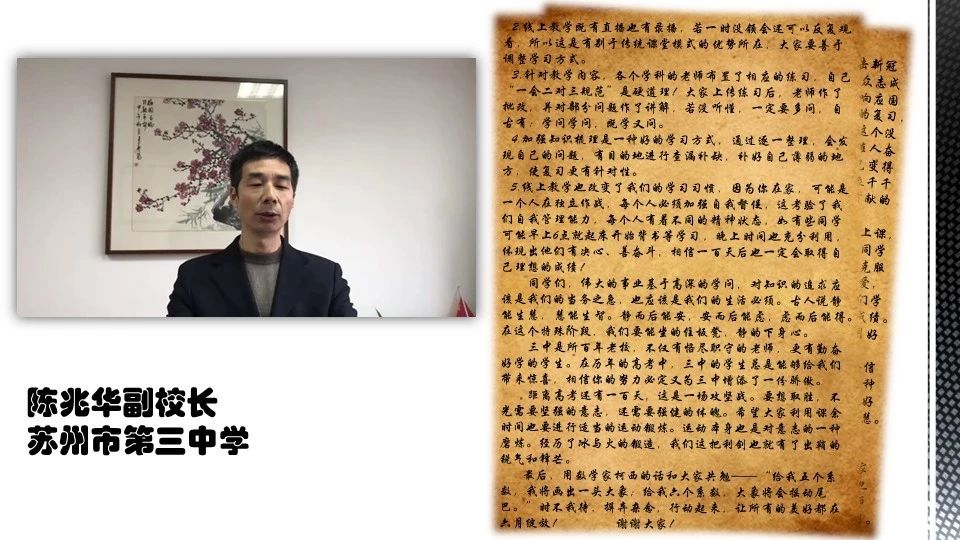 2.线上教学既有直播也有录播，若一时没领会还可以反复观
看，所以这是有别于传统课堂模式的优势所在，大家要善于
调整学习方式。
3.针对教学内容，各个学科的老师布置了相应的练习，自己
“一会二对三规范”是硬道理！大家上传练习后，老师作了
批改，并对部分问题作了讲解，若没听懂，一定要多问，自
古有：学问学问，既学又问。
4.加强知识梳理是一种好的学习方式，通过逐一整理，会发
现自己的问题，有目的地进行查漏补缺，补好自己薄弱的地
方，使复习更有针对性。
5.线上教学也改变了我们的学习习惯，因为你在家，可能是
一个人在独立作战，每个人必须加强自我督促，这考验了我
们自我管理能力，每个人有着不同的精神状态，如有些同学
可能早上6点就起来开始背书等学习，晚上时间也充分利用，
体现出他们有决心、善奋斗，相信一百天后也一定会取得自
己理想的成绩！
同学们，伟大的事业基于高深的学问，对知识的追求应
该是我们的当务之急，也应该是我们的生活必须。古人说静
能生慧，慧能生智。静而后能安，安而后能虑，虑而后能得。
在这个特殊阶段，我们要能坐的住板凳，静的下身心。
三中是所百年老校，不仅有恪尽职守的老师，更有勤奋
好学的学生。在历年的高考中，三中的学生总是能够给我们
带来惊喜，相信你的努力必定又为三中增添了一份骄傲。
距离高考还有一百天，这是一场攻坚战。要想取胜，不
光需要坚强的意志，还需要强健的体魄。希望大家利用课余
时间也要进行适当的运动锻炼。运动本身也是对意志的一种
磨炼。经历了冰与火的锻造，我们这把利剑也就有了出鞘的
锐气和锋芒。
最后，用数学家柯西的话和大家共勉——“给我五个系
数，我将画出一头大象；给我六个系数，大象将会摇动尾
巴。”时不我待，摒弃杂念，行动起来，让所有的美好都在
六月绽放！ 谢谢大家！
新冠
志成
应国
复习，
个没
人奋
变得
千千
献的
上课，
同学
克服
爱，
们学
绩。
好
信
种
好
慧。
陈兆华副校长
苏州市第三中学